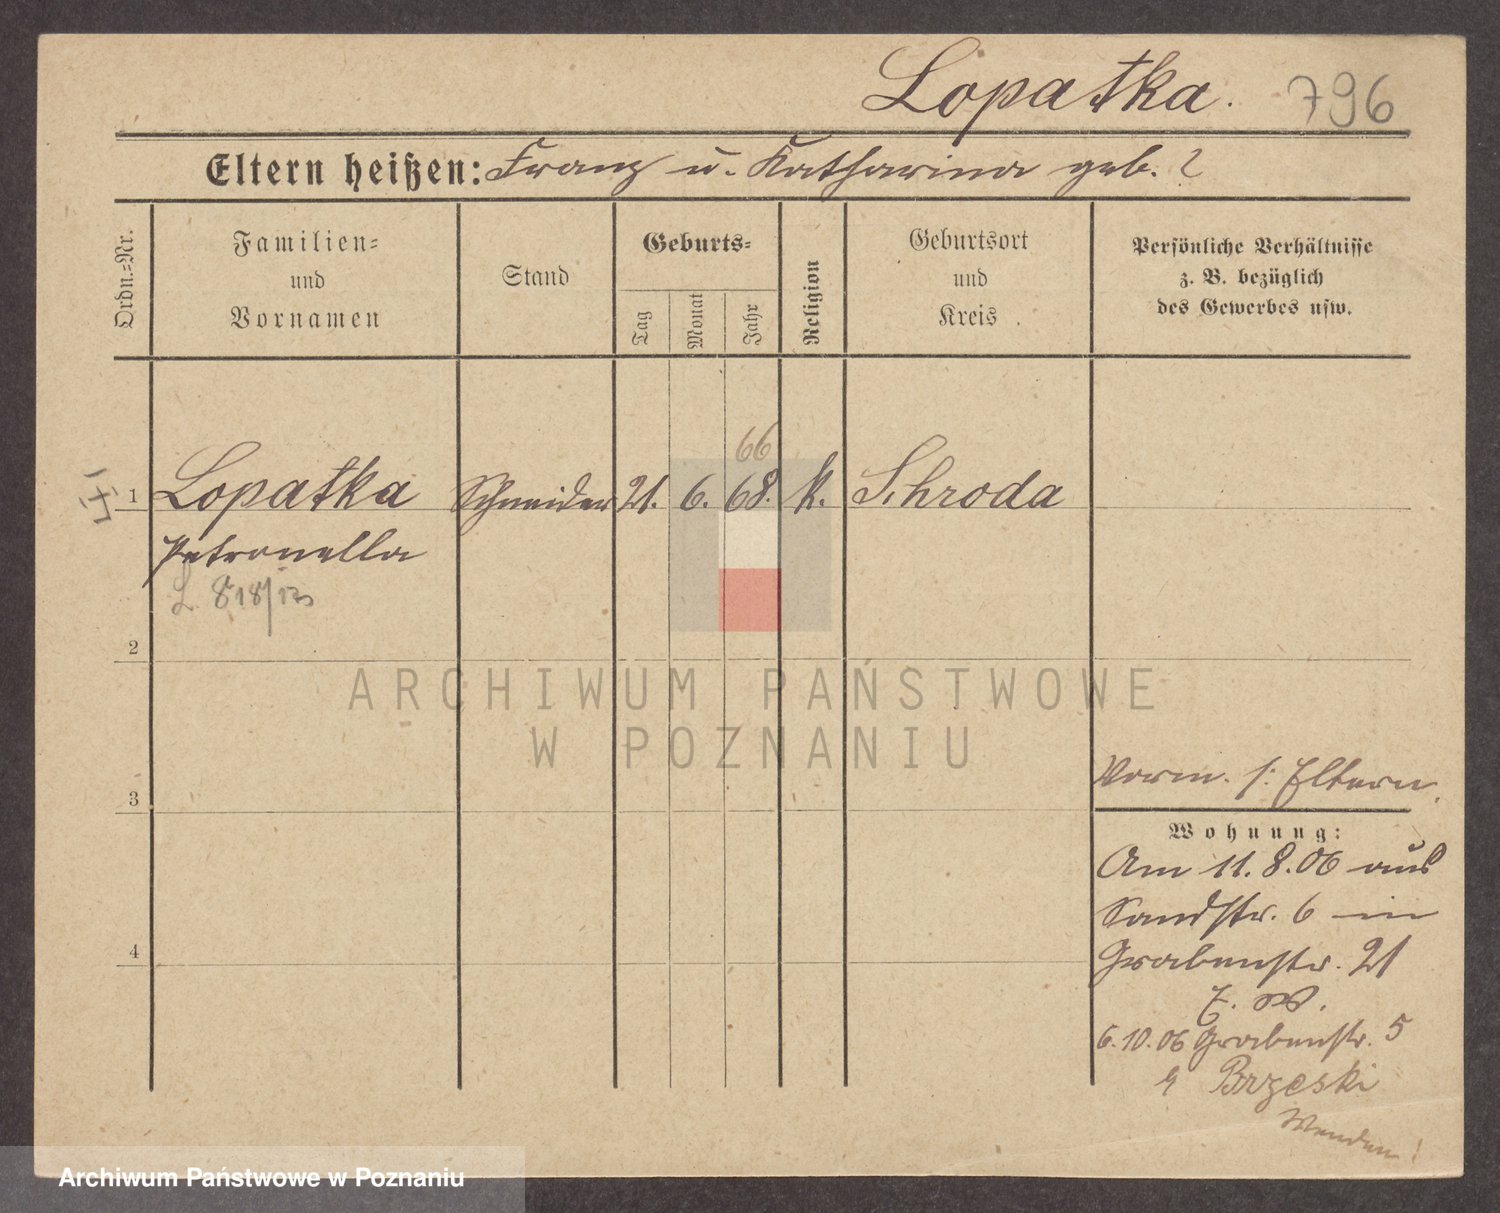 Lopatka. 796
Eltern heißen: Franz u. Katharina geb. ?
Ordn.=Nr.
Familien=
und
Vornamen
Stand
Geburts=
Tag
Monat
Jahr
Religion
Geburtsort
und
Kreis
Persönliche Verhältnisse
z. B. bezüglich
des Gewerbes usw.
66
1 Lopatka Schneider 21. 6. 68. k. Schroda
Petronella
L 818/
2
3
4
Vorm. s: Eltern.
Wohnung:
Am 11. 8. 06 aus
Sandstr. 6 in
Grabenstr. 21
z. W.
6.10.06 Grabenstr. 5
Brzeski
Wenden!
ARCHIWUM PAŃSTWOWE
W POZNANIU
Archiwum Państwowe w Poznaniu